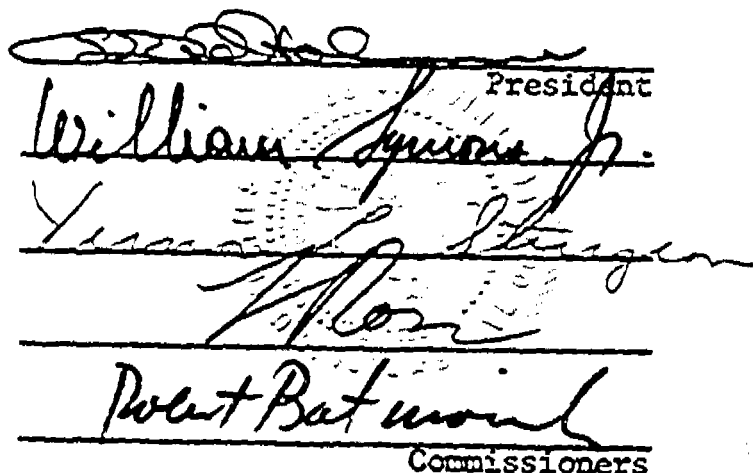 President
William Symons Jr.
Sturgeon
Ross
Robert Batinovich
Commissioners